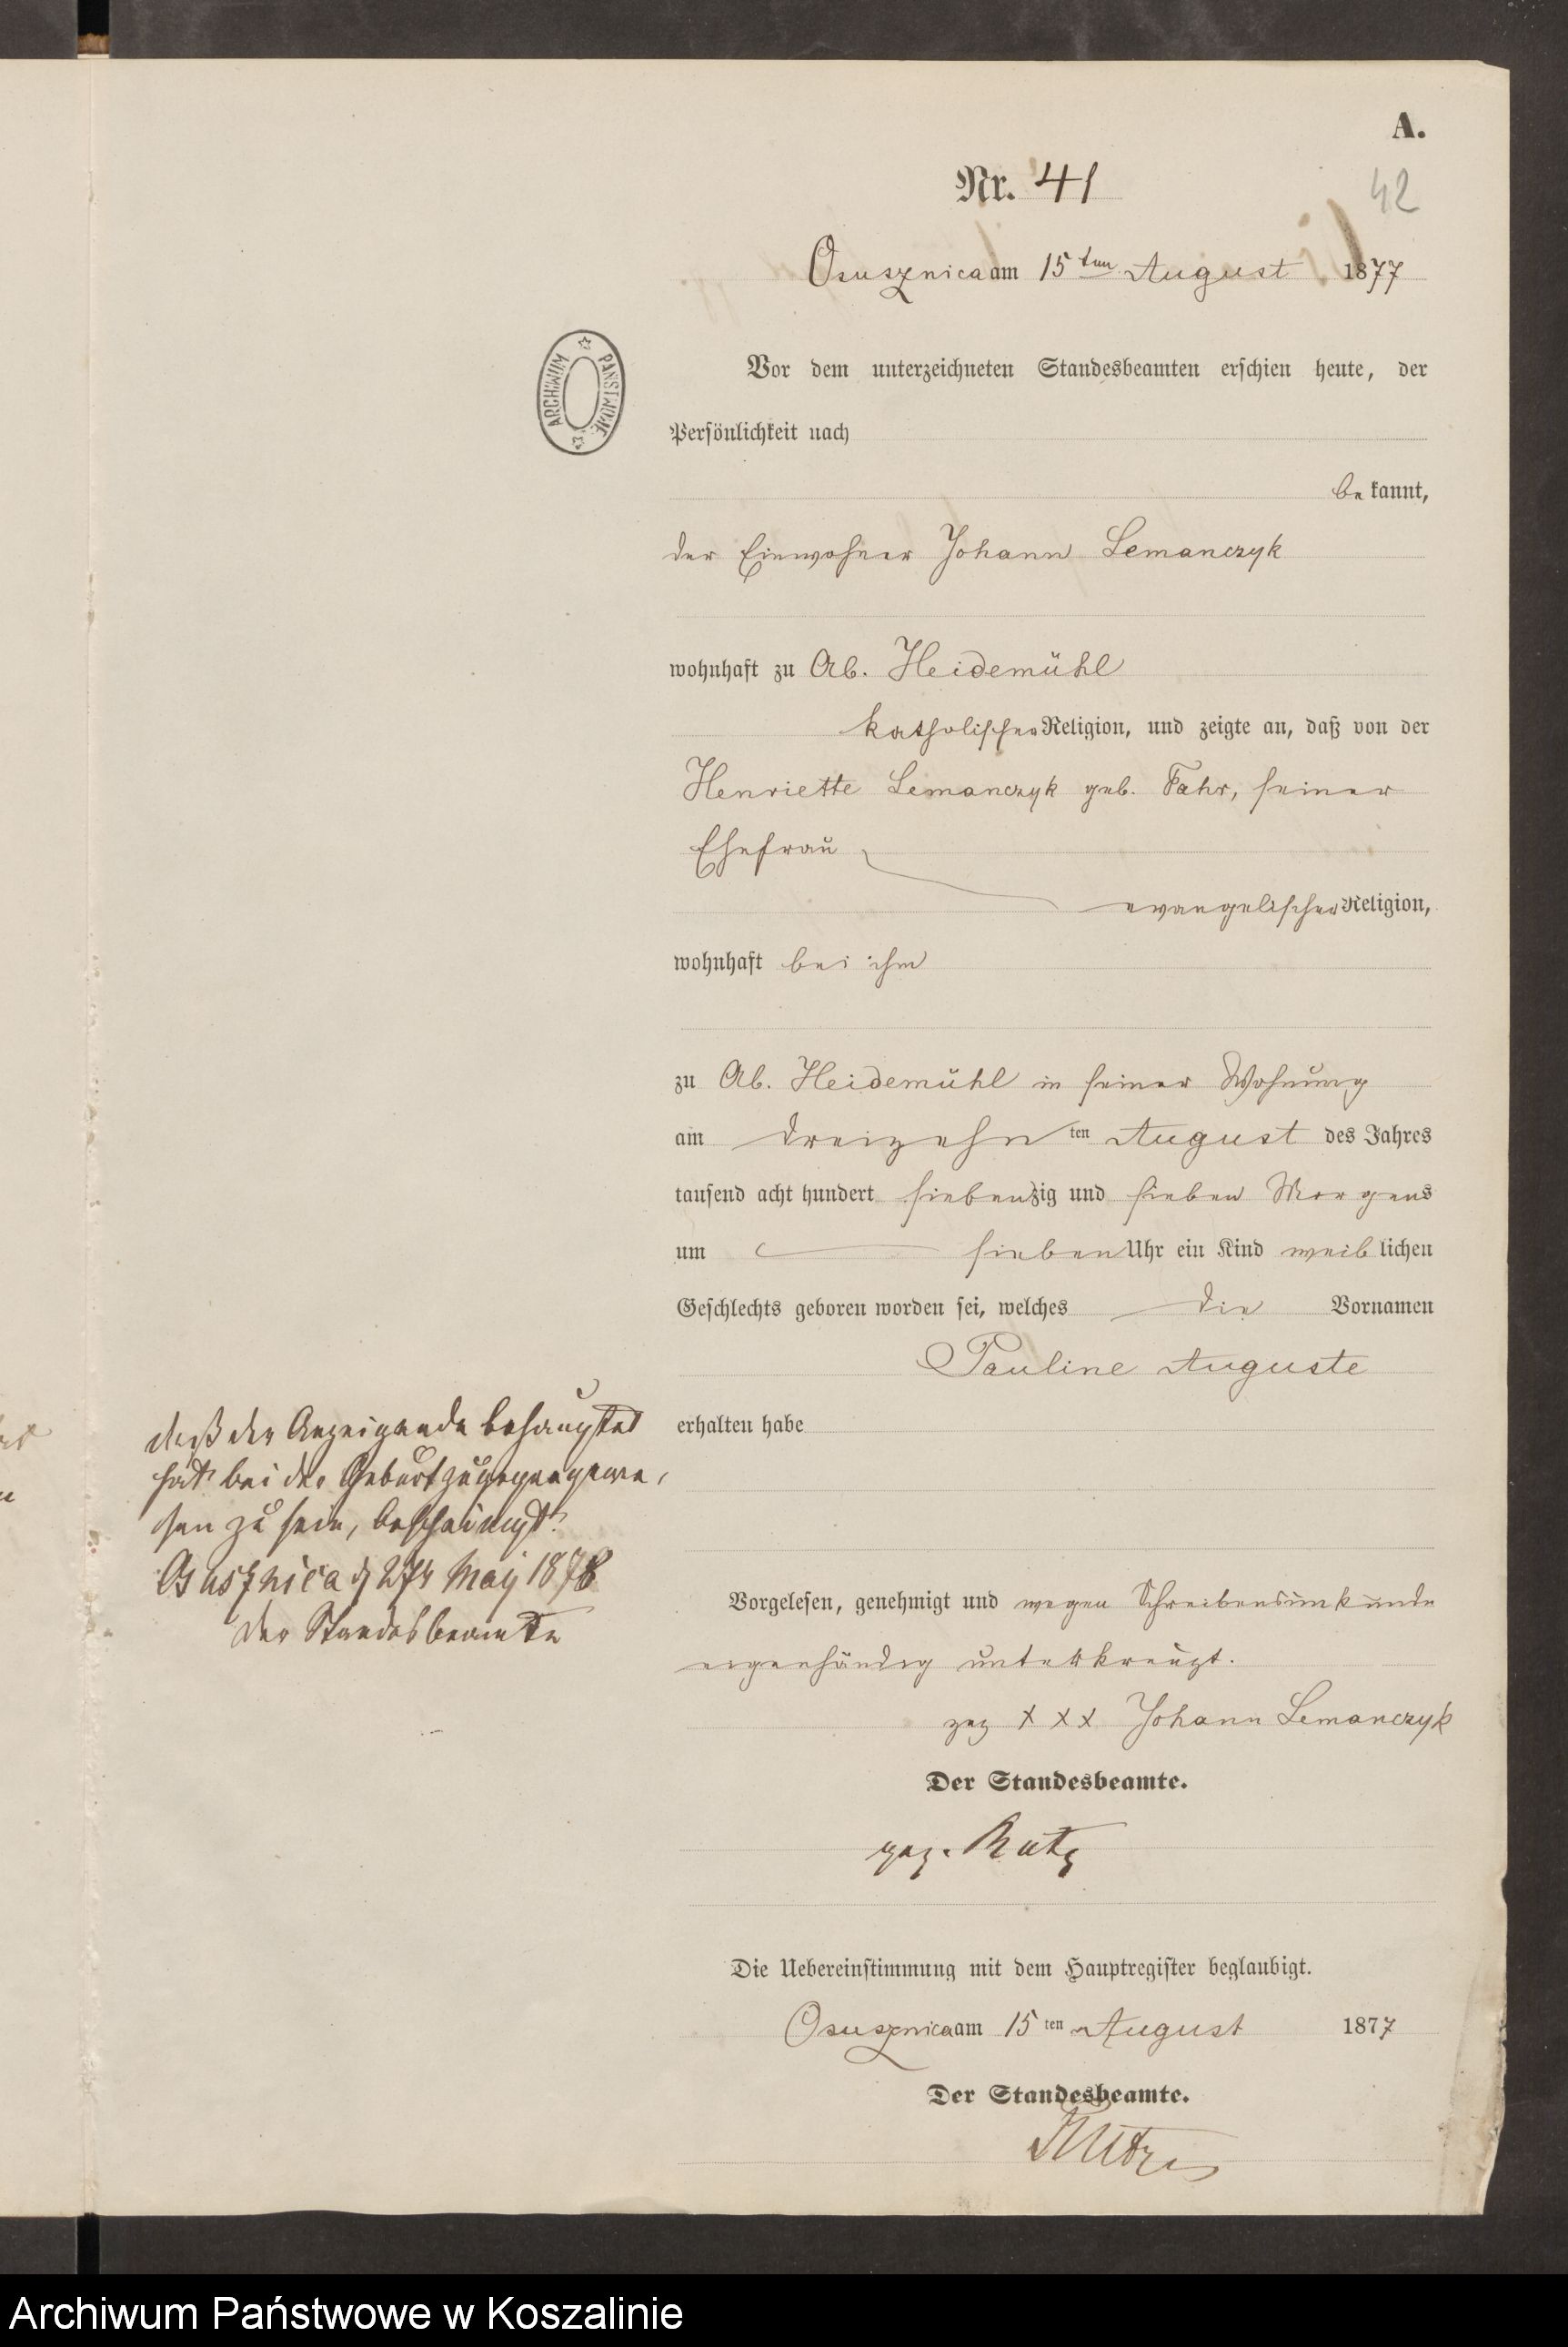 A.
Nr. 41
42
Osusznica am 15ten August 1877
ARCHIWUM PAŃSTWOWE
Vor dem unterzeichneten Standesbeamten erschien heute, der
Persönlichkeit nach
bekannt,
der Einwohner Johann Lemanczyk
wohnhaft zu Ab. Heidemühl
katholischer Religion, und zeigte an, daß von der
Henriette Lemanczyk geb. Fahr, seiner
Ehefrau
evangelischer Religion,
wohnhaft bei ihm
zu Ab. Heidemühl in seiner Wohnung
am dreizehnten August des Jahres
tausend acht hundert siebenzig und sieben Morgens
um sieben Uhr ein Kind weiblichen
Geschlechts geboren worden sei, welches die Vornamen
Pauline Auguste
erhalten habe
daß der Anzeigende behauptet
hat bei der Geburt zugegen gewe,
sen zu sein, bescheinigt.
Osusznica d 27t May 1878
Der Standesbeamte
Vorgelesen, genehmigt und wegen Schreibensunkunde
eigenhändig unterkreuzt.
gez x x x Johann Lemanczyk
Der Standesbeamte.
gez. Rutz
Die Uebereinstimmung mit dem Hauptregister beglaubigt.
Osusznica am 15ten August 1877
Der Standesbeamte.
Archiwum Państwowe w Koszalinie